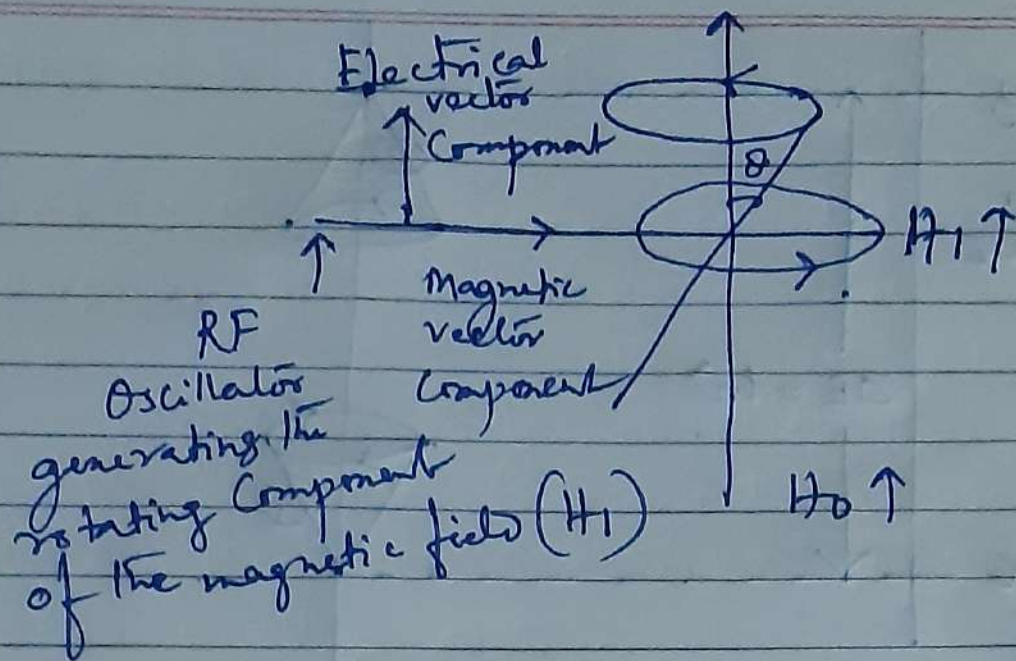 Electrical
vector
Component
θ
H₁ ↑
Magnetic
vector
Component
RF
Oscillator
generating the
rotating Component
of the magnetic field (H₁)
H₀ ↑